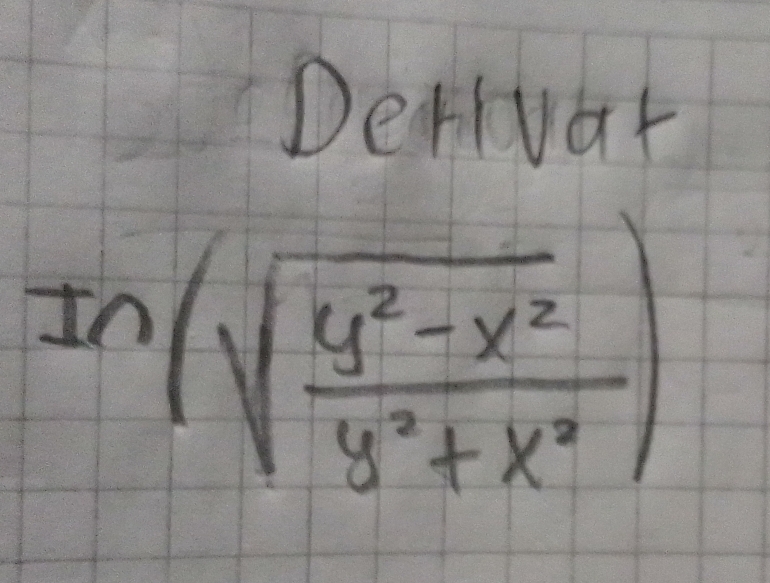 Derivar
In(√(y² - x² / y² + x²))